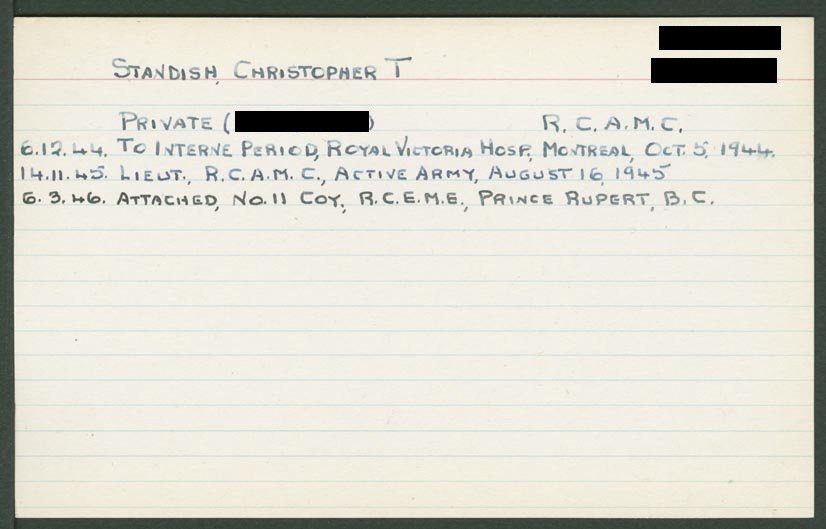 STANDISH, CHRISTOPHER T
PRIVATE ( ) R.C.A.M.C.
6.12.44. TO INTERNE PERIOD, ROYAL VICTORIA HOSP., MONTREAL, OCT. 5, 1944.
14.11.45. LIEUT., R.C.A.M.C., ACTIVE ARMY, AUGUST 16, 1945
6.3.46. ATTACHED, NO.11 COY., R.C.E.M.E., PRINCE RUPERT, B.C.